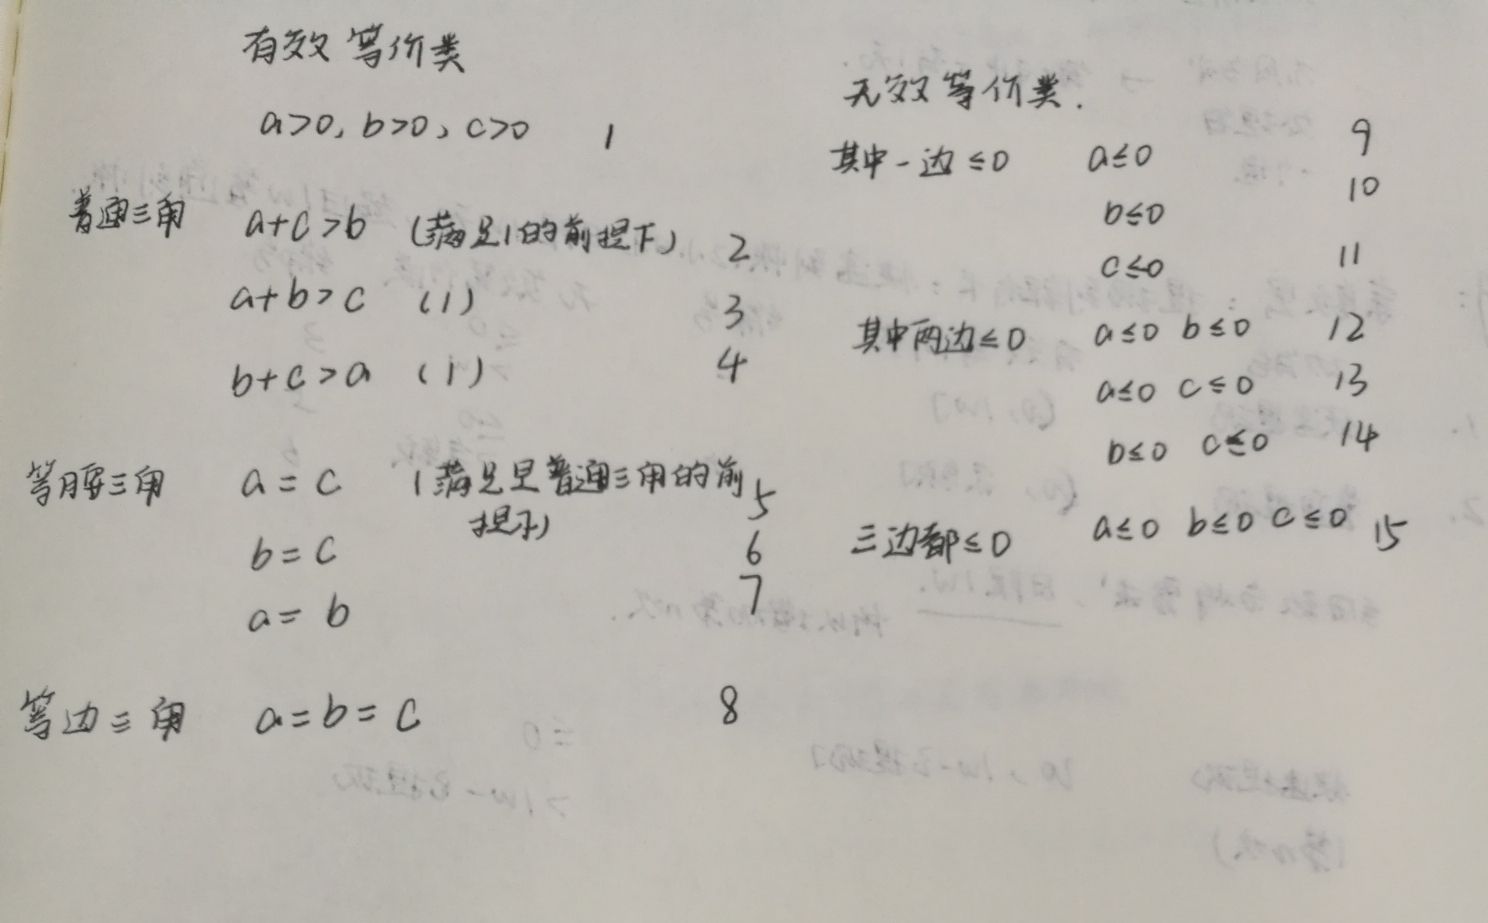 有效等价类
a>0, b>0, c>0 1
普通三角 a+c>b (满足1的前提下) 2
a+b>c (1) 3
b+c>a (1) 4
等腰三角 a=c (满足是普通三角的前提下) 5
b=c 6
a=b 7
等边三角 a=b=c 8
无效等价类.
其中一边≤0 a≤0 9
b≤0 10
c≤0 11
其中两边≤0 a≤0 b≤0 12
a≤0 c≤0 13
b≤0 c≤0 14
三边都≤0 a≤0 b≤0 c≤0 15